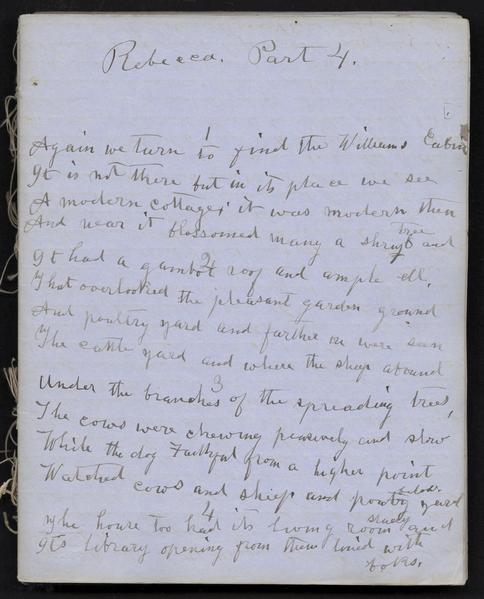 Rebecca. Part 4.
1
Again we turn to find the Williams Cabin
It is not there but in its place we see
A modern cottage; it was modern then
And near it blossomed many a shrub and tree
2
It had a gambol roof and ample ell,
That overlooked the pleasant garden ground
And poultry yard and farther on were seen
The cattle yard and where the sheep abound
3
Under the branches of the spreading trees,
The cows were chewing pensively and slow
While the dog Faithful from a higher point
Watched cows and sheep and poultry yard below.
4
The house too had its living room and study
Its library opening from them lined with books.